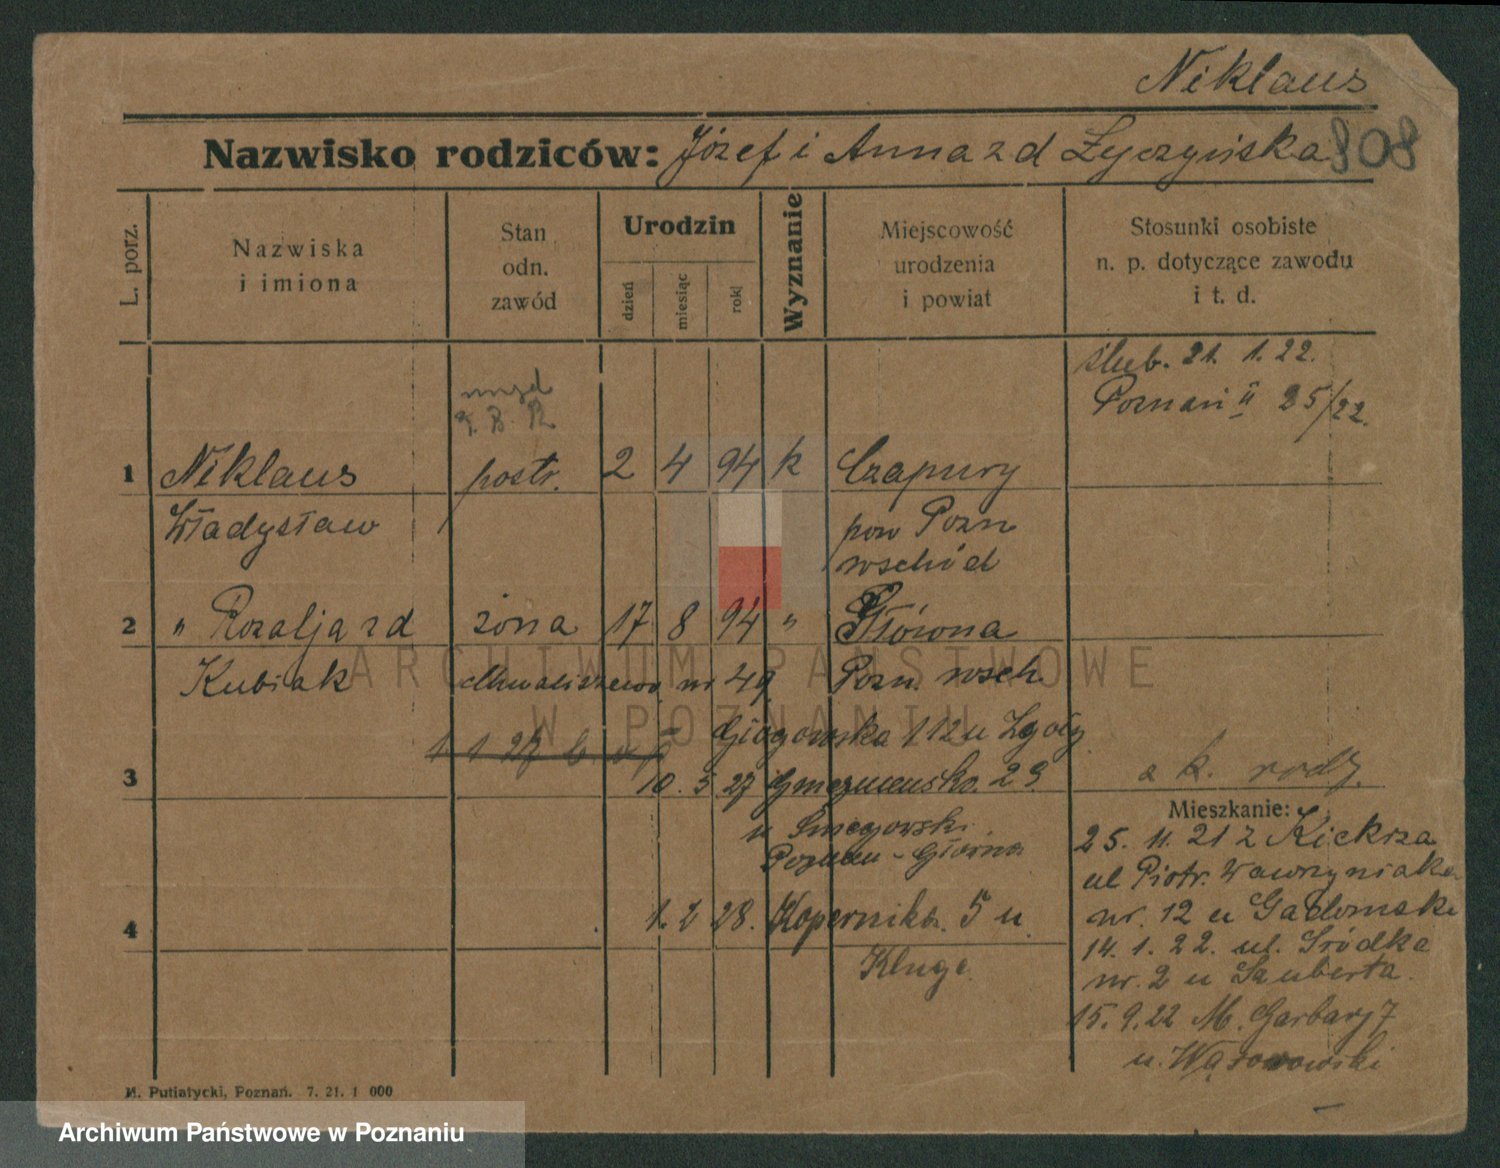 Niklaus
Nazwisko rodziców: Józef i Anna z d Życzyńska 808
L. porz.
Nazwiska
i imiona
Stan
odn.
zawód
Urodzin
dzień
miesiąc
rok
Wyznanie
Miejscowość
urodzenia
i powiat
Stosunki osobiste
n. p. dotyczące zawodu
i t. d.
ślub. 21. 1. 22.
Poznań II 25/22.
B. R.
1 Niklaus postr. 2 4 94 k Czapury
Władysław pow Pozn
wschód
2 " Rozalja z d żona 17 8 94 " Główna
Kubiak Chwaliszewo nr 49 Pozn. wsch.
ARCHIWUM PAŃSTWOWE
W POZNANIU
1 1 27 Głogowska 112 u Zgoły
3 10. 5 27 29 a k. rodz.
u
Poznań - Główna
4 1. 2 28. Kopernika 5 u
Kluge
Mieszkanie:
25. 11. 21 z Kiekrza
ul Piotr. Wawrzyniaka
nr. 12 u Gadomski
14. 1. 22. ul. Śródka
nr. 2 u Szuberta.
15. 9. 22 M. Garbary 7
u.
M. Putiatycki, Poznań. 7. 21. 1 000
Archiwum Państwowe w Poznaniu